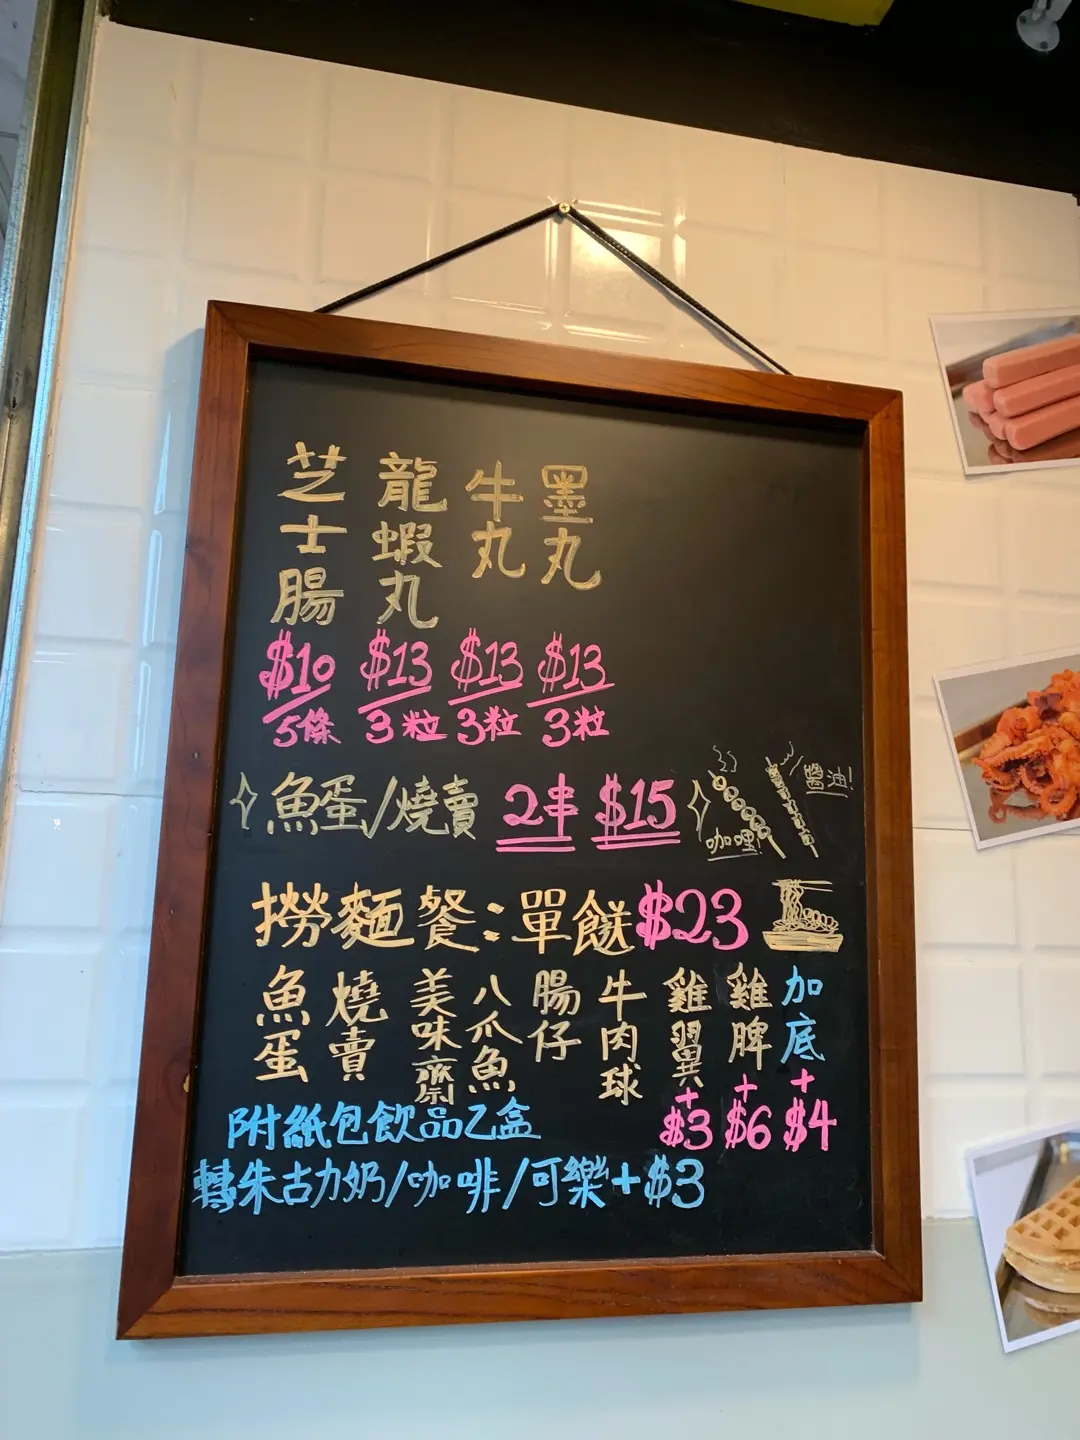 芝士腸 龍蝦丸 牛丸 墨丸
$10 $13 $13 $13
5條 3粒 3粒 3粒
魚蛋/燒賣 2串 $15 咖哩! 醬油!
撈麵餐:單餸$23
魚蛋 燒賣 美味齋 八爪魚 腸仔 牛肉球 雞翼 雞脾 加底
+$3 +$6 +$4
附紙包飲品乙盒
轉朱古力奶/咖啡/可樂+$3